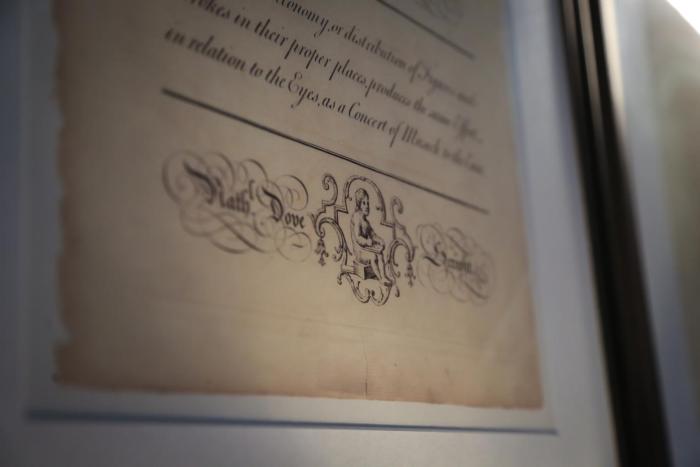 conomy, or distribution of Figures and
rokes in their proper places, produces the same Effect,
in relation to the Eyes, as a Concert of Musick to the Ears
Nath.l Dove